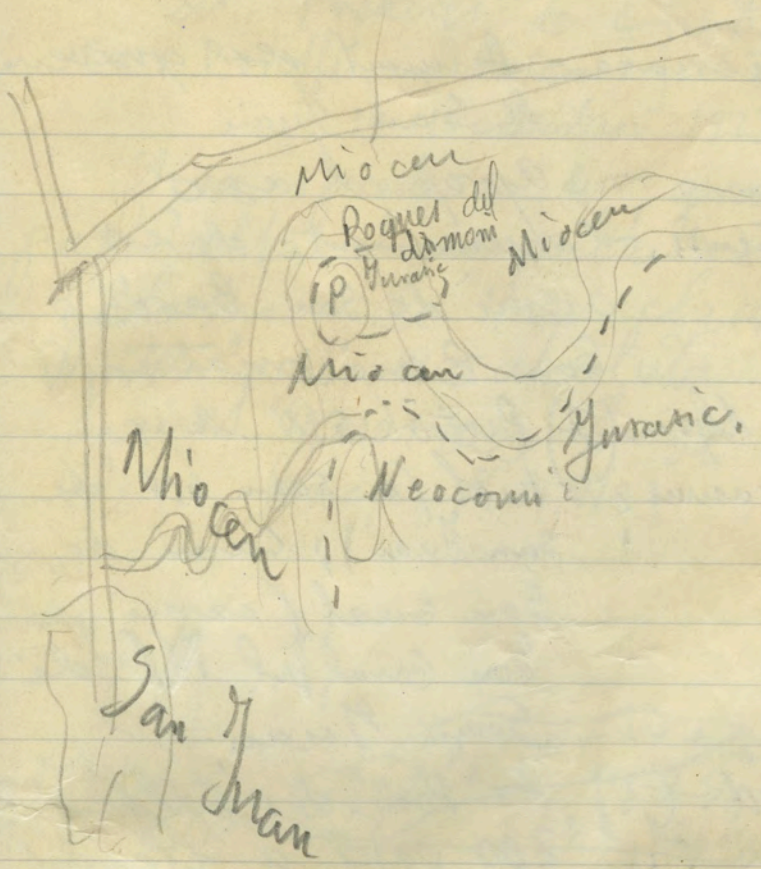 Miocen
Roques del
dimoni
Jurasic
P
Miocen
Miocen
Jurasic.
Miocen
Neocomi
San Juan